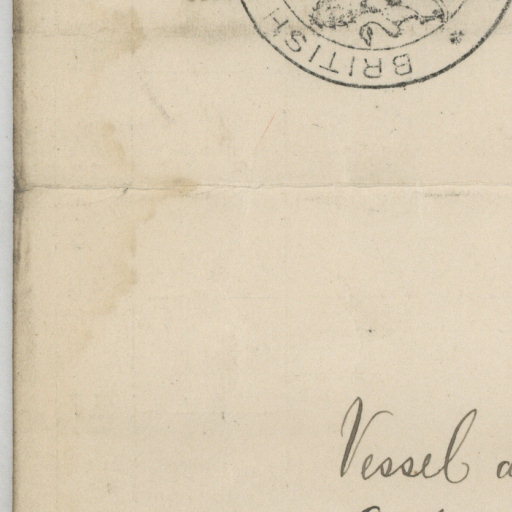 BRITISH
Vessel